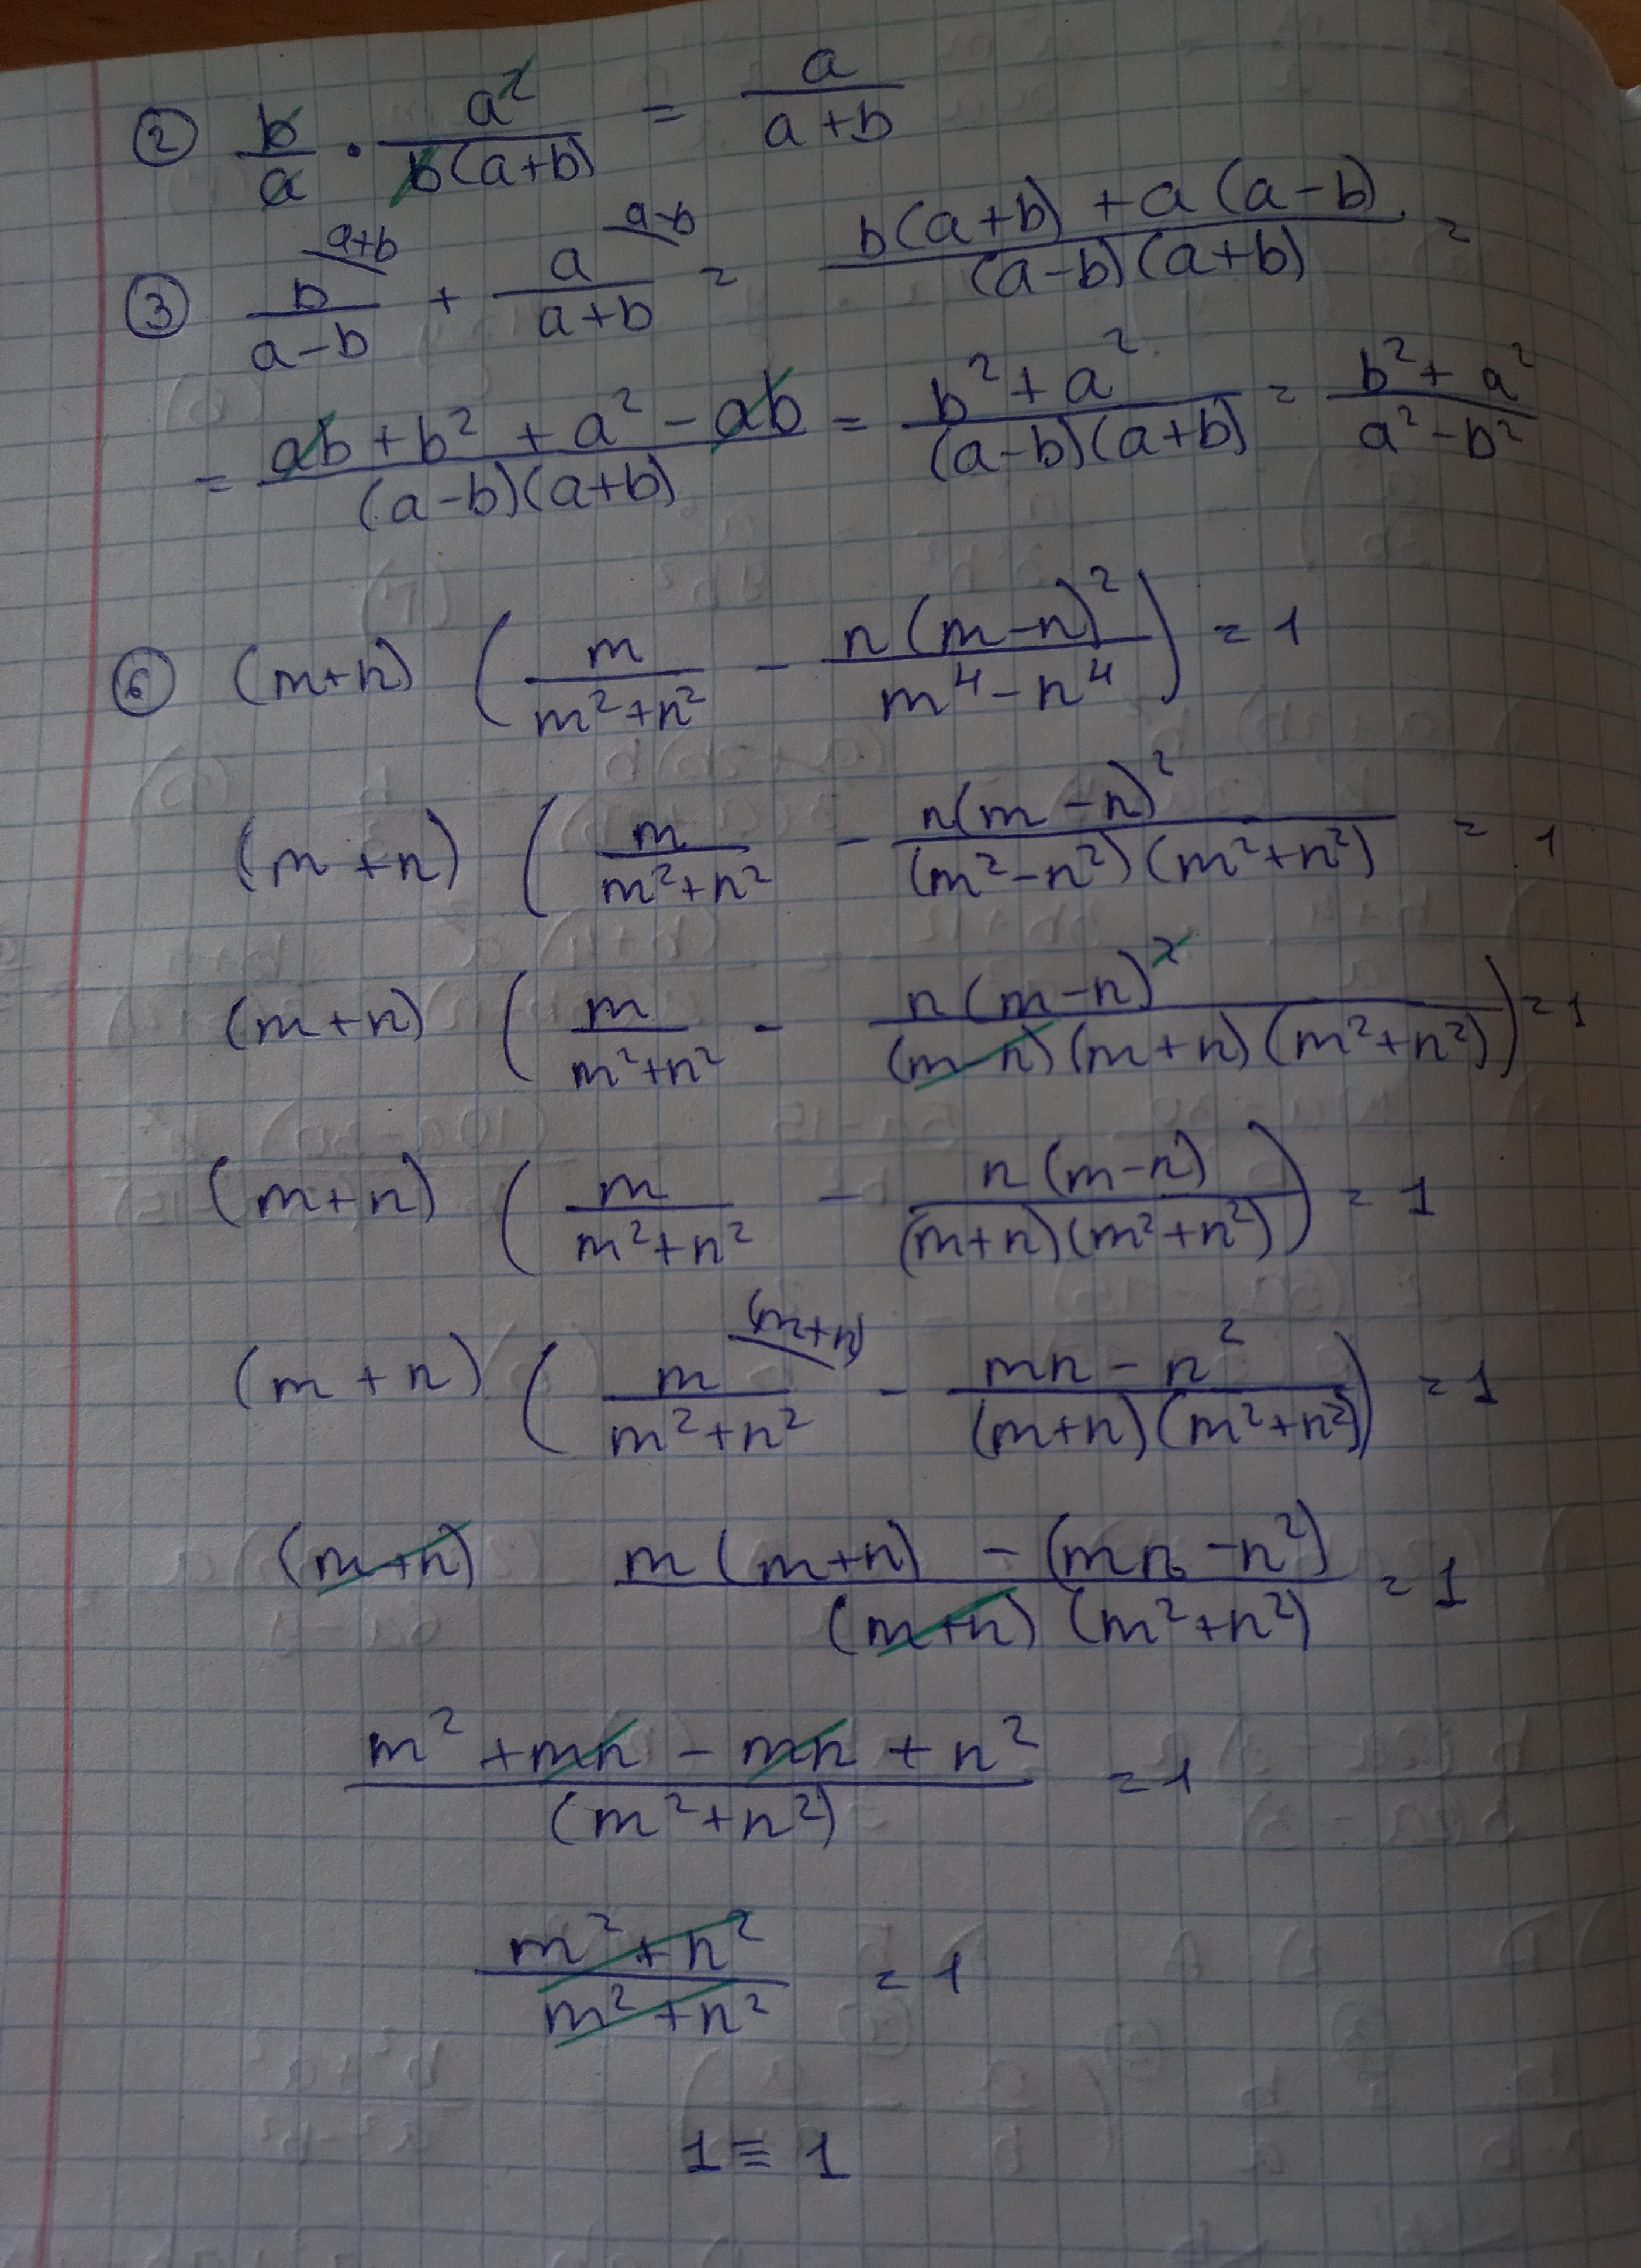 ② b/a · a²/b(a+b) = a/a+b
③ b/a-b (a+b) + a/a+b (a-b) = b(a+b) + a(a-b)/(a-b)(a+b) =
= ab + b² + a² - ab/(a-b)(a+b) = b² + a²/(a-b)(a+b) = b² + a²/a² - b²
⑥ (m+n) (m/m²+n² - n(m-n)²/m⁴-n⁴) = 1
(m+n) (m/m²+n² - n(m-n)²/(m²-n²)(m²+n²) = 1
(m+n) (m/m²+n² - n(m-n)²/(m-n)(m+n)(m²+n²)) = 1
(m+n) (m/m²+n² - n(m-n)/(m+n)(m²+n²)) = 1
(m+n) (m/m²+n² (m+n) - mn-n²/(m+n)(m²+n²)) = 1
(m+n) m(m+n) - (mn-n²)/(m+n)(m²+n²) = 1
m² + mn - mn + n²/(m²+n²) = 1
m²+n²/m²+n² = 1
1 ≡ 1